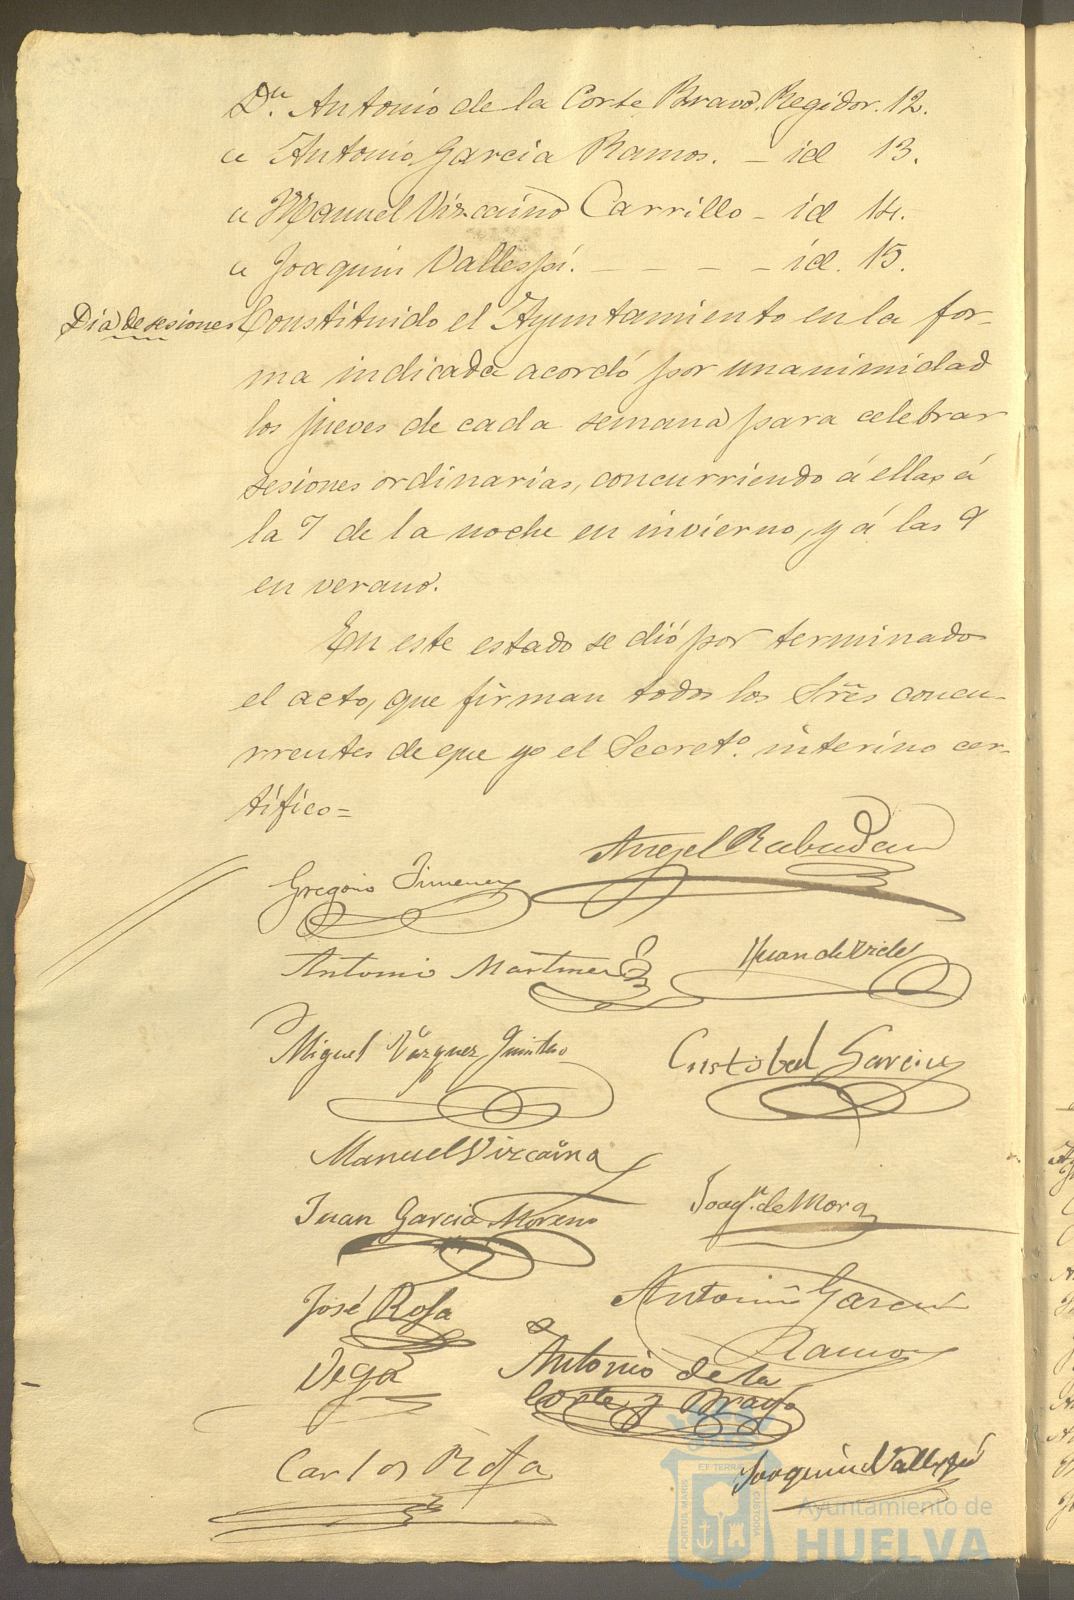 Dn. Antonio de la Corte Bravo. Regidor. 12.
" Antonio Garcia Ramos. - id 13.
" Manuel Vizcaino Carrillo - id 14.
" Joaquin Vallespi. - - - - id. 15.
Dia de sesiones
Constituido el Ayuntamiento en la for-
ma indicada acordó por unanimidad
los jueves de cada semana para celebrar
sesiones ordinarias, concurriendo á ellas á
la 7 de la noche en invierno, y á las 9
en verano.
En este estado se dió por terminado
el acto, que firman todos los Sres concu-
rrentes de que yo el Secreto. interino cer-
tifico=
Angel Rabadan
Gregorio Jimenez
Antonio Martinez
Juan de Vides
Miguel Vázquez
Cristobal Garcia
Manuel Vizcaino
Juan Garcia Moreno
Joaqn. de Mora
José Rosa
Vega
Antonio Garcia
Ramos
Antonio de la
Corte y Bravo
Carlos Rosa
Joaquin Vallespí
PORTUS MARIS
ET TERRAE
CUSTODIA
Ayuntamiento de
HUELVA